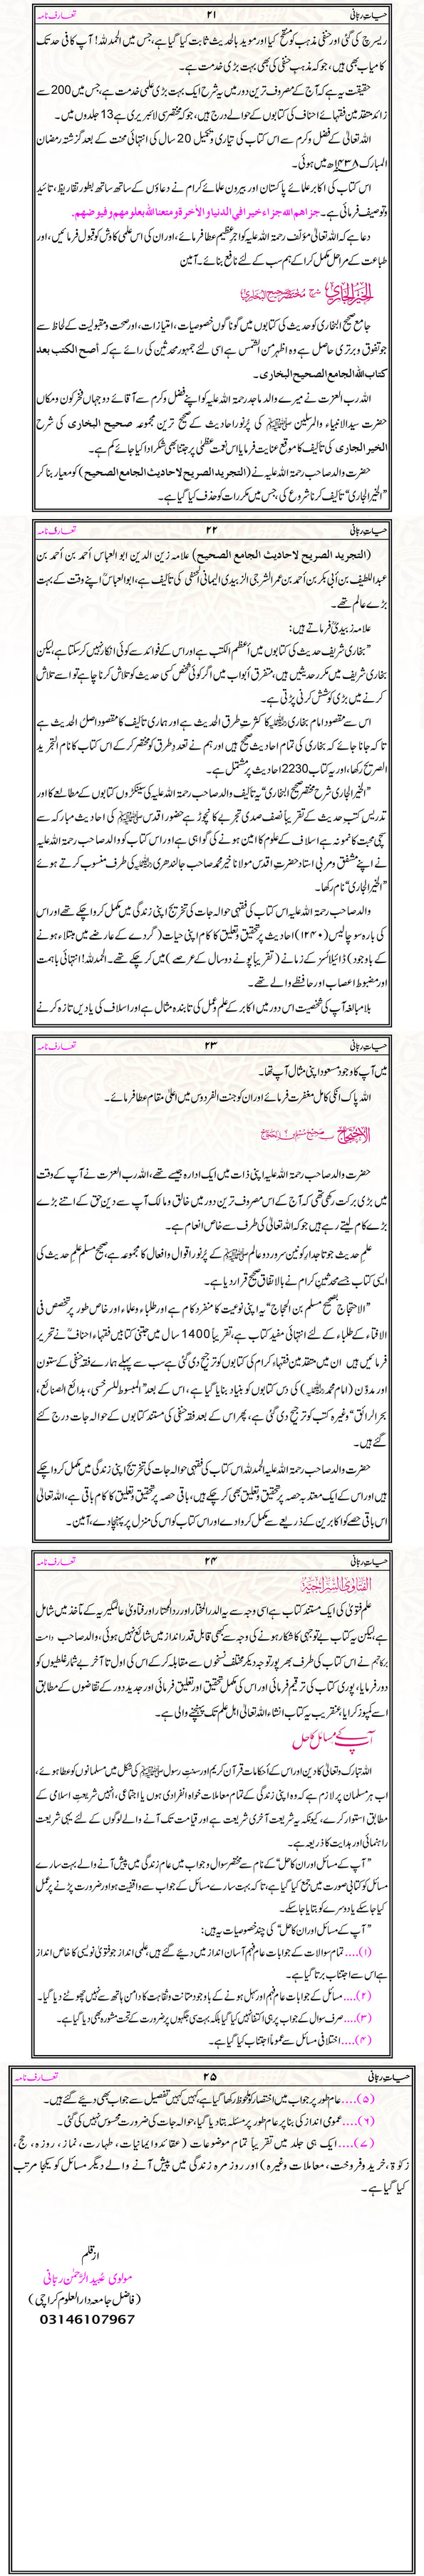 حیاتِ ربّانی ۲۱ تعارف نامہ
ریسرچ کی گئی اور حنفی مذہب کو منقح کیا اور موید بالحدیث ثابت کیا گیا ہے، جس میں الحمد للہ! آپ کافی حد تک
کامیاب بھی ہیں، جو کہ مذہبِ حنفی کی بھی بہت بڑی خدمت ہے۔
حقیقت یہ ہے کہ آج کے مصروف ترین دور میں یہ شرح ایک بہت بڑی علمی خدمت ہے، جس میں 200 سے
زائد متقدمین فقہائے احناف کی کتابوں کے حوالے درج ہیں، جو کہ مختصر سی لائبریری ہے 13 جلدوں میں۔
اللہ تعالیٰ کے فضل و کرم سے اس کتاب کی تیاری و تکمیل 20 سال کی انتہائی محنت کے بعد گزشتہ رمضان
المبارک ۱۴۳۸ھ میں ہوئی۔
اس کتاب کی اکابر علمائے پاکستان اور بیرون علمائے کرام نے دعاؤں کے ساتھ ساتھ بطور تقاریظ، تائید
و توصیف فرمائی ہے۔ جزاهم الله جزاء خيرا في الدنيا و الأخرة و متعنا الله بعلومهم و فيوضهم.
دعا ہے کہ اللہ تعالیٰ مؤلف رحمۃ اللہ علیہ کو اجرِ عظیم عطا فرمائے، اور ان کی اس علمی کاوش کو قبول فرمائیں، اور
طباعت کے مراحل مکمل کرا کے ہم سب کے لئے نافع بنائے۔ آمین
الخیر الجاری شرح مختصر صحیح البخاری
جامع صحیح البخاری کو حدیث کی کتابوں میں گوناگوں خصوصیات، امتیازات، اور صحت و مقبولیت کے لحاظ سے
جو تفوق و برتری حاصل ہے وہ اظہر من الشمس ہے اسی لئے جمہور محدثین کی رائے ہے کہ أصح الكتب بعد
كتاب الله الجامع الصحيح البخاري۔
اللہ رب العزت نے میرے والد ماجد رحمۃ اللہ علیہ کو اپنے فضل و کرم سے آقائے دو جہاں فخر کون و مکاں
حضرت سید الانبیاء والمرسلین ﷺ کی پُر نور احادیث کے صحیح ترین مجموعہ صحیح البخاری کی شرح
الخیر الجاری کی تألیف کا موقع عنایت فرمایا اس نعمت عظمیٰ پر جتنا بھی شکر ادا کیا جائے کم ہے۔
حضرت والد صاحب رحمۃ اللہ علیہ نے (التجريد الصريح لاحاديث الجامع الصحيح) کو معیار بنا کر
”الخیر الجاری“ تألیف کرنا شروع کی، جس میں مکررات کو حذف کیا گیا ہے۔
حیاتِ ربّانی ۲۲ تعارف نامہ
(التجريد الصريح لاحاديث الجامع الصحيح) علامہ زین الدین ابو العباس أحمد بن أحمد بن
عبد اللطیف بن أبی بکر بن أحمد بن عمر الشرجی الزبیدی الیمانی الحنفی کی تألیف ہے، ابو العباسؒ اپنے وقت کے بہت
بڑے عالم تھے۔
علامہ زبیدیؒ فرماتے ہیں:
”بخاری شریف حدیث کی کتابوں میں أعظم الکتب ہے اور اس کے فوائد سے کوئی انکار نہیں کر سکتا ہے، لیکن
بخاری شریف میں مکرر حدیثیں ہیں، متفرق ابواب میں اگر کوئی شخص کسی حدیث کو تلاش کرنا چاہے تو اسے تلاش
کرنے میں بڑی کوشش کرنی پڑتی ہے۔
اس سے مقصود امام بخاریؒ کا کثرتِ طرقِ الحدیث ہے اور ہماری تألیف کا مقصود اصل الحدیث ہے
تاکہ جانا جائے کہ بخاری کی تمام احادیث صحیح ہیں اور ہم نے تعددِ طرق کو مختصر کر کے اس کتاب کا نام التجرید
الصریح رکھا، اور یہ کتاب 2230 احادیث پر مشتمل ہے۔
”الخیر الجاری شرح مختصر صحیح البخاری“ یہ تألیف والد صاحب رحمۃ اللہ علیہ کی سینکڑوں کتابوں کے مطالعے کا اور
تدریس کتب حدیث کے تقریباً نصف صدی تجربے کا نچوڑ ہے حضور اقدس ﷺ کی احادیث مبارکہ سے
سچی محبت کا نمونہ ہے اسلاف کے علوم کا امین ہونے کی گواہی ہے اور اس کتاب کو والد صاحب رحمۃ اللہ علیہ
نے اپنے مشفق و مربی استاد حضرتِ اقدس مولانا خیر محمد صاحب جالندھریؒ کی طرف منسوب کرتے ہوئے
”الخیر الجاری“ نام رکھا۔
والد صاحب رحمۃ اللہ علیہ اس کتاب کی فقہی حوالہ جات کی تخریج اپنی زندگی میں مکمل کروا چکے تھے اور اس
کی بارہ سو چالیس (۱۲۴۰) احادیث پر تحقیق و تعلیق کا کام اپنی حیات (گردے کے عارضے میں مبتلاء ہونے
کے باوجود) ڈائیلائسز کے زمانے (تقریباً پونے دو سال کے عرصے) میں کر چکے تھے۔ الحمد للہ! انتہائی باہمت
اور مضبوط اعصاب اور حافظے والے تھے۔
بلا مبالغہ آپ کی شخصیت اس دور میں اکابر کے علم و عمل کی تابندہ مثال ہے اور اسلاف کی یادیں تازہ کرنے
حیاتِ ربّانی ۲۳ تعارف نامہ
میں آپ کا وجودِ مسعود اپنی مثال آپ تھا۔
اللہ پاک انکی کامل مغفرت فرمائے اور ان کو جنت الفردوس میں اعلیٰ مقام عطا فرمائے۔
الاحتجاج بصحیح مسلم بن الحجاج
حضرت والد صاحب رحمۃ اللہ علیہ اپنی ذات میں ایک ادارہ جیسے تھے، اللہ رب العزت نے آپ کے وقت
میں بڑی برکت رکھی تھی کہ آج کے اس مصروف ترین دور میں خالق و مالک آپ سے دینِ حق کے اتنے بڑے بڑے
کام لیتے رہے ہیں جو کہ اللہ تعالیٰ کی طرف سے خاص انعام ہے۔
علم حدیث جو تاجدارِ کونین سرورِ دو عالم ﷺ کے پُر نور اقوال و افعال کا مجموعہ ہے، صحیح مسلم علمِ حدیث کی
ایسی کتاب جسے محدثین کرام نے بالاتفاق صحیح قرار دیا ہے۔
”الاحتجاج بصحیح مسلم بن الحجاج“ یہ اپنی نوعیت کا منفرد کام ہے اور طلباء و علماء اور خاص طور پر تخصص فی
الافتاء کے طلباء کے لئے انتہائی مفید کتاب ہے، تقریباً 1400 سال میں جتنی کتابیں فقہاء احنافؒ نے تحریر
فرمائیں ہیں ان میں متقدمین فقہاء کرام کی کتابوں کو ترجیح دی گئی ہے سب سے پہلے ہمارے فقہ حنفی کے ستون
اور مدوّن (امام محمدؒ) کی دس کتابوں کو بنیاد بنایا گیا ہے، اس کے بعد ”المبسوط للسرخسی، بدائع الصنائع،
بحر الرائق“ وغیرہ کتب کو ترجیح دی گئی ہے، پھر اس کے بعد فقہ حنفی کی مستند کتابوں کے حوالہ جات درج کئے
گئے ہیں۔
حضرت والد صاحب رحمۃ اللہ علیہ الحمد للہ اس کتاب کی فقہی حوالہ جات کی تخریج اپنی زندگی میں مکمل کروا چکے
ہیں اور اس کے ایک معتدبہ حصہ پر تحقیق و تعلیق بھی کر چکے ہیں، باقی حصہ پر تحقیق و تعلیق کا کام باقی ہے، اللہ تعالیٰ
اس باقی حصے کو اکابرین کے ذریعے سے مکمل کروا دے اور اس کتاب کو اس کی منزل پر پہنچا دے، آمین۔
حیاتِ ربّانی ۲۴ تعارف نامہ
الفتاوی السراجیۃ
علمِ فتویٰ کی ایک مستند کتاب ہے اسی وجہ سے یہ الدر المختار اور رد المحتار اور فتاویٰ عالمگیریہ کے مآخذ میں شامل
ہے، لیکن یہ کتاب بے توجہی کا شکار ہونے کی وجہ سے کبھی قابلِ قدر انداز میں شائع نہیں ہوئی، والد صاحب دامت
برکاتہم نے اس کتاب کی طرف بھر پور توجہ دیگر مختلف نسخوں سے مقابلہ کر کے اس کی اول تا آخر بے شمار غلطیوں کو
دور فرمایا، پوری کتاب کی ترقیم فرمائی اور اس کی مکمل تحقیق اور تعلیق فرمائی اور جدید دور کے تقاضوں کے مطابق
اسے کمپوز کرایا، عنقریب یہ کتاب انشاء اللہ تعالیٰ اہلِ علم تک پہنچنے والی ہے۔
آپ کے مسائل کا حل
اللہ تبارک و تعالیٰ کا دین اور اس کے أحکامات قرآن کریم اور سنت رسول ﷺ کی شکل میں مسلمانوں کو عطا ہوئے،
اب ہر مسلمان پر لازم ہے کہ وہ اپنی زندگی کے تمام معاملات خواہ انفرادی ہوں یا اجتماعی، انہیں شریعتِ اسلامی کے
مطابق استوار کرے، کیونکہ یہ شریعت آخری شریعت ہے اور قیامت تک آنے والے لوگوں کے لئے یہی شریعت
راہنمائی اور ہدایت کا ذریعہ ہے۔
”آپ کے مسائل اور ان کا حل“ کے نام سے مختصر سوال و جواب میں عام زندگی میں پیش آنے والے بہت سارے
مسائل کو کتابی صورت میں جمع کیا گیا ہے، تاکہ بہت سارے مسائل کے جواب سے واقفیت ہو اور ضرورت پڑنے پر عمل
کیا جا سکے یا دوسرے کو بتایا جا سکے۔
”آپ کے مسائل اور ان کا حل“ کی چند خصوصیات یہ ہیں:
(۱)....تمام سوالات کے جوابات عام فہم آسان انداز میں دیئے گئے ہیں، علمی انداز جو فتویٰ نویسی کا خاص انداز
ہے اس سے اجتناب برتا گیا ہے۔
(۲)....مسائل کے جوابات عام فہم اور سہل ہونے کے باوجود متانت و ثقاہت کا دامن ہاتھ سے نہیں چھوٹنے دیا گیا۔
(۳)....صرف سوال کے جواب پر ہی اکتفا نہیں کیا گیا بلکہ بہت سی جگہوں پر ضرورت کے تحت مشورہ بھی دیا گیا ہے۔
(۴)....اختلافی مسائل سے عموماً اجتناب کیا گیا ہے۔
حیاتِ ربّانی ۲۵ تعارف نامہ
(۵)....عام طور پر جواب میں اختصار کو ملحوظ رکھا گیا ہے، کہیں کہیں تفصیل سے جواب بھی دیئے گئے ہیں۔
(۶)....عمومی انداز کی بنا پر عام طور پر مسئلہ بتا دیا گیا، حوالہ جات کی ضرورت محسوس نہیں کی گئی۔
(۷)....ایک ہی جلد میں تقریباً تمام موضوعات (عقائد و ایمانیات، طہارت، نماز، روزہ، حج،
زکوٰۃ، خرید و فروخت، معاملات وغیرہ) اور روز مرہ زندگی میں پیش آنے والے دیگر مسائل کو یکجا مرتب
کیا گیا ہے۔
از قلم
مولوی عُبید الرّحمٰن ربّانی
(فاضل جامعہ دار العلوم کراچی)
03146107967